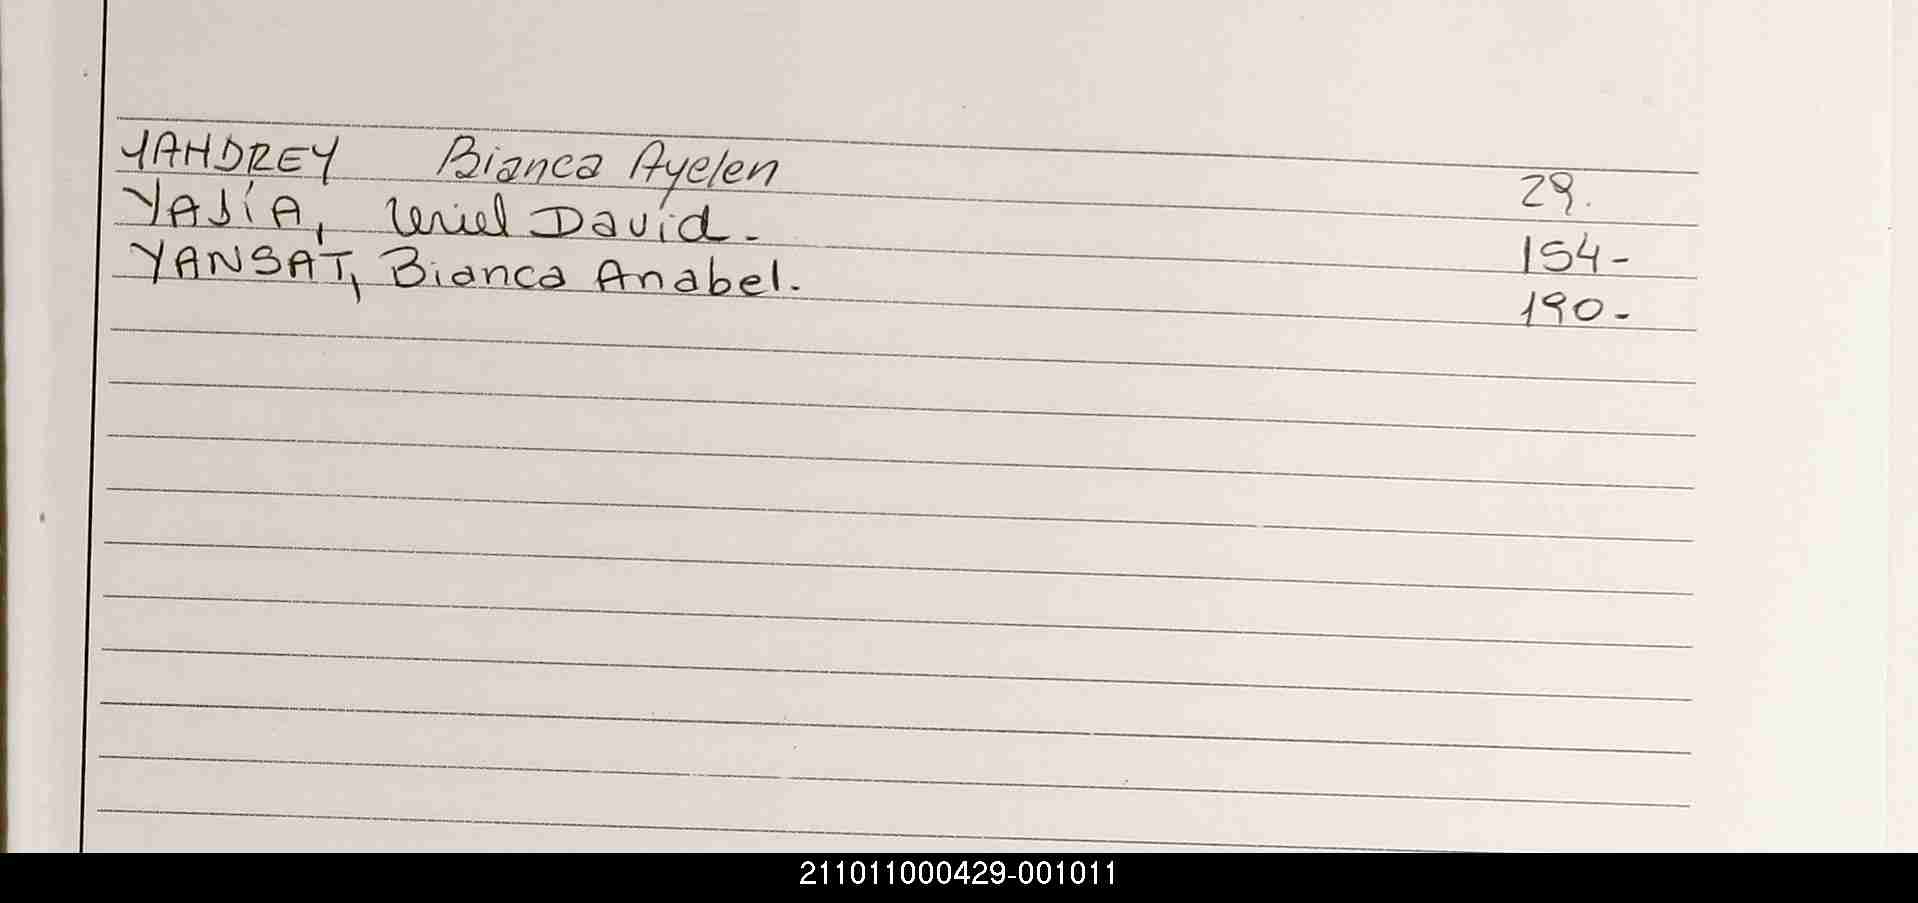 YAHDREY Bianca Ayelen 29.
YAJÍA, Uriel David. 154-
YANSAT, Bianca Anabel. 190-
211011000429-001011